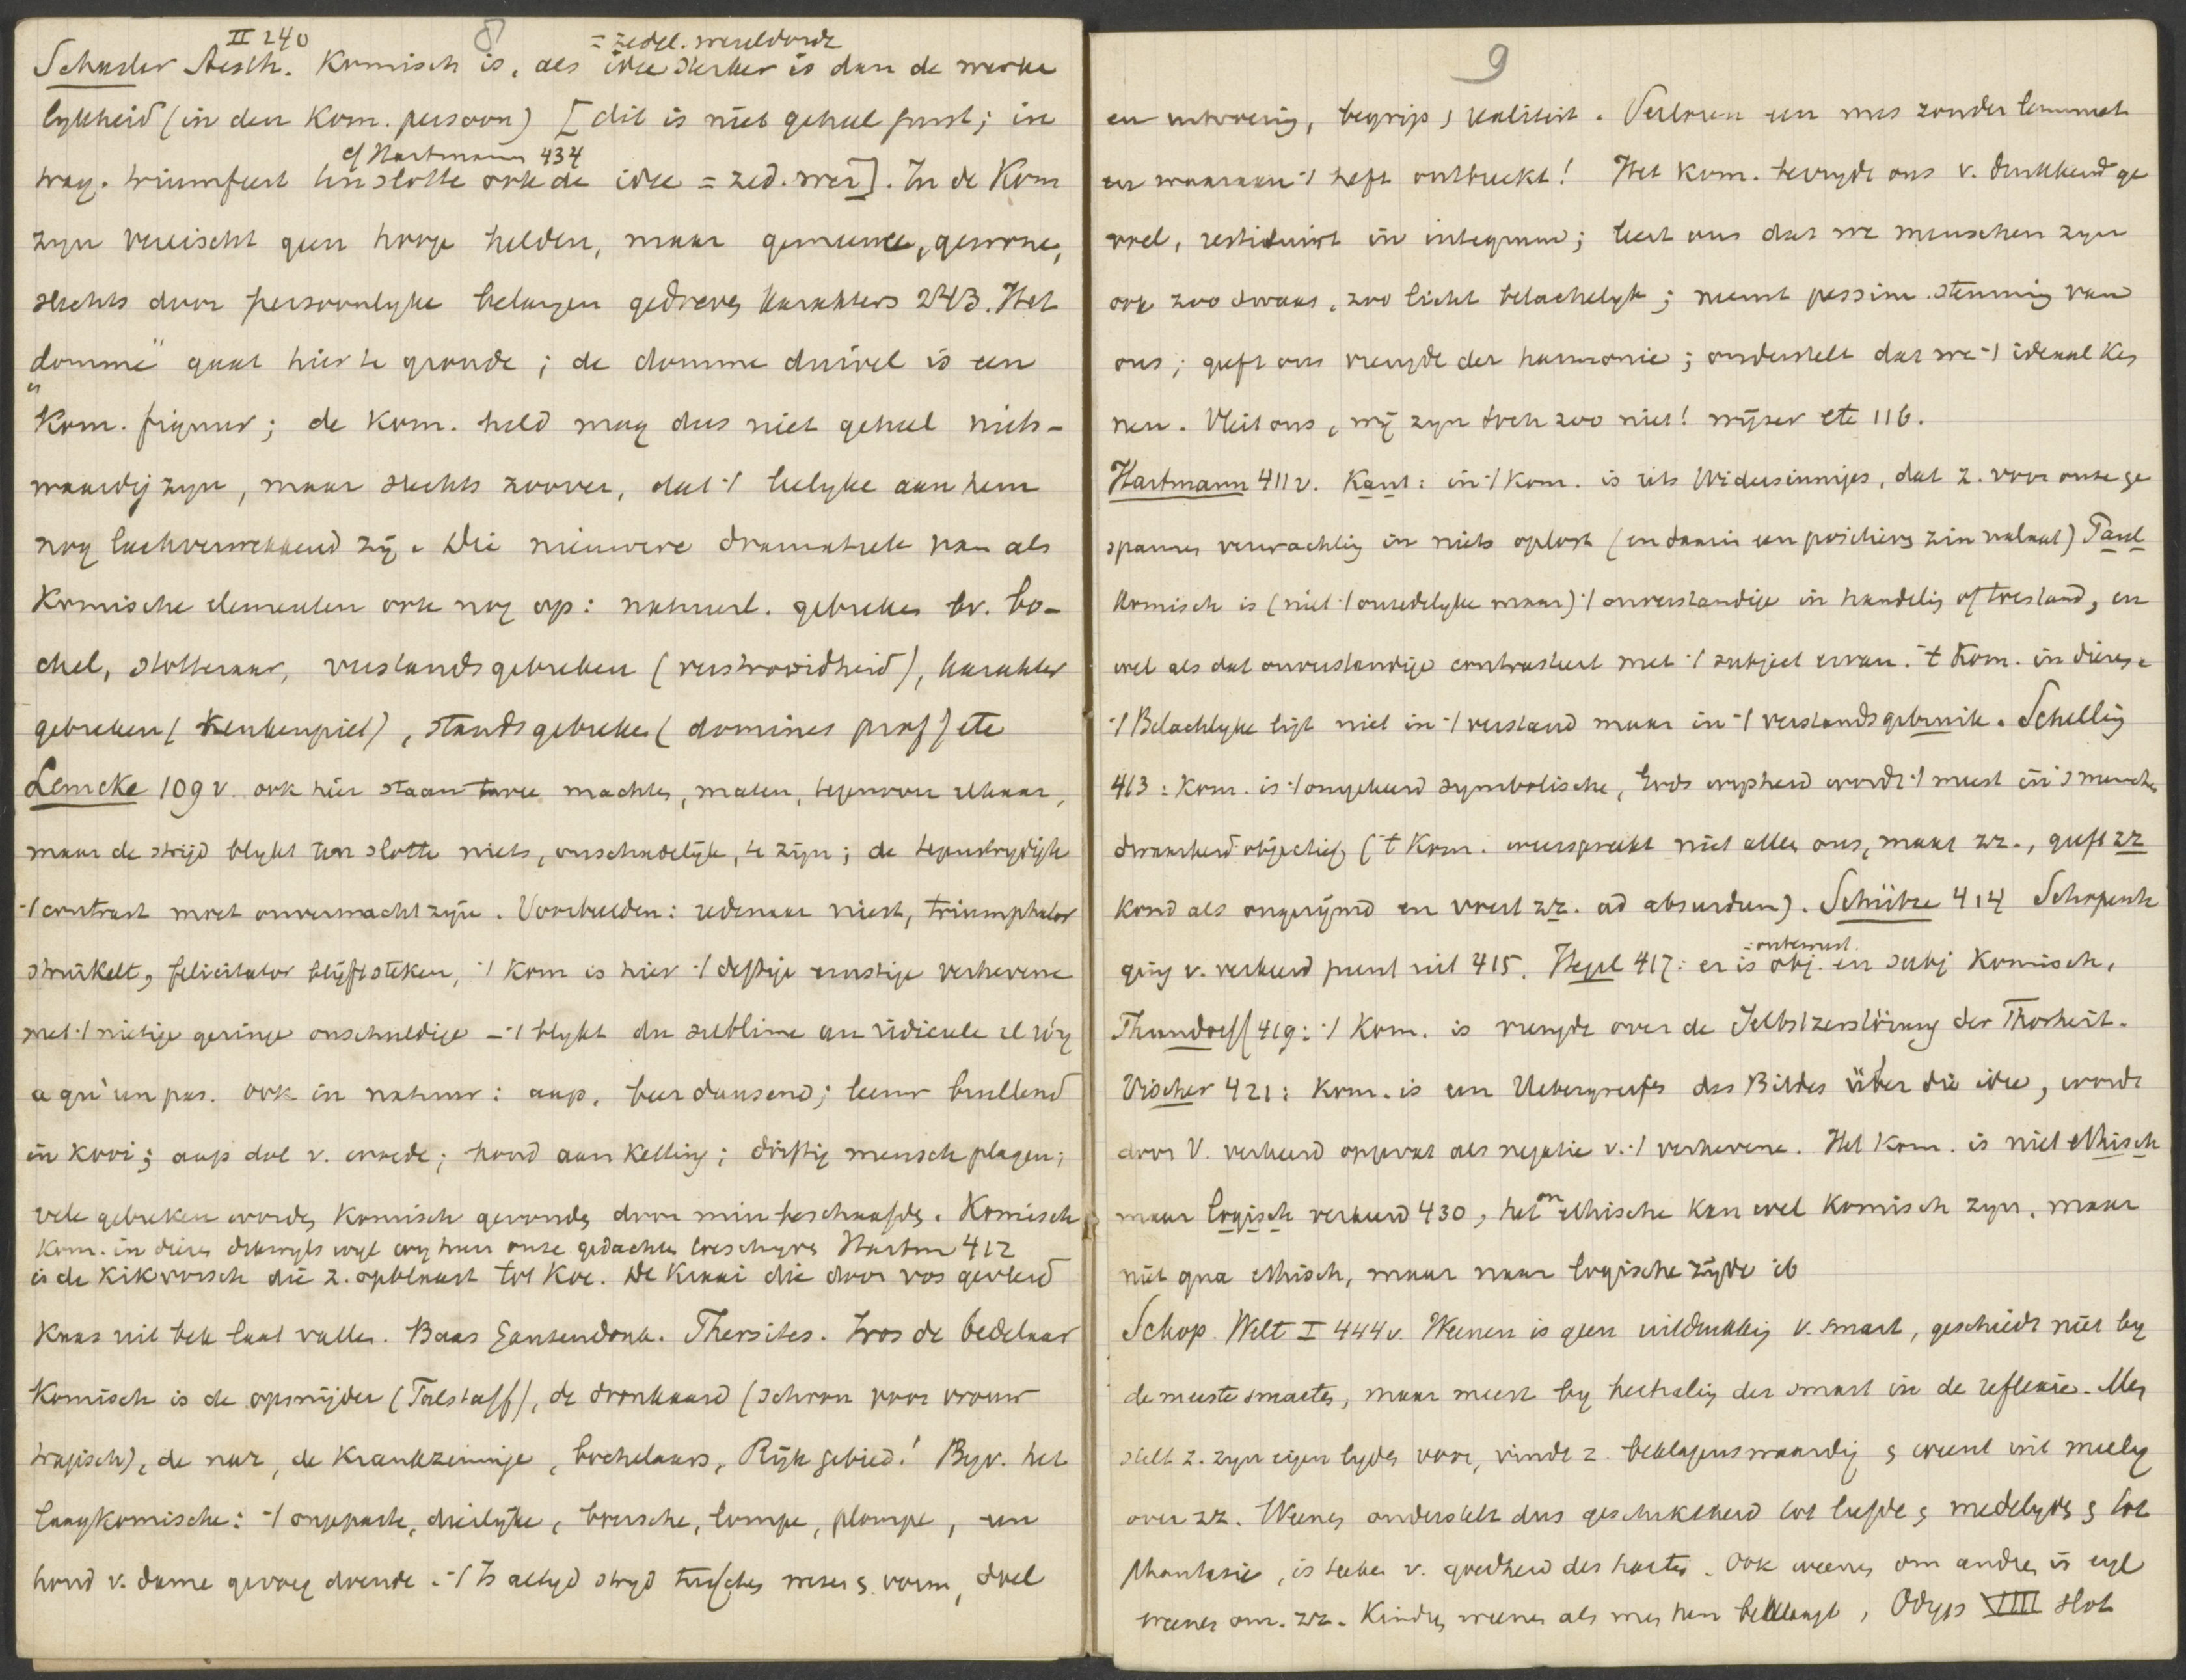 8
II 240
= zedel. wereldorde
Schasler Aesth. Komisch is, als idee sterker is dan de werke
lykheid (in den Kom. persoon) [dit is niet geheel juist; in
cf Hartmann 434
trag. triumfeert tenslotte ook de idee = zed. wer]. In de Kom
zyn vereischt geen hooge helden, maar gemeene, gewone,
slechts door persoonlyke belangen gedreven karakters 243. Het
domme gaat hier te gronde; de domme duivel is een
Kom. figuur; de Kom. held mag dus niet geheel niets-
waardig zyn, maar slechts zoover, dat 't leelyke aan hem
nog lachverwekkend zij. Die nieuwere dramatiek nam als
Komische elementen ook nog op: natuurl. gebreken bv. bo-
chel, stotteraar, verstandsgebreken (verstrooidheid), karakter
gebreken (Keukenpiet), standsgebreken (domines prof) etc
Lemcke 109 v. ook hier staan twee machten, maten, tegenover elkaar,
maar de strijd blykt ten slotte niets, onschadelijk, te zijn; de tegenstrydige
't contrast moet onverwacht zijn. Voorbeelden: redenaar niest, triumphator
struikelt, felicitator blijft steken, 't Kom is hier 't deftige ernstige verhevene
met 't nietige geringe onschuldige - 't blykt du sublime au ridicule il n'y
a qu'un pas. ook in natuur: aap, beer dansend; leeuw brullend
in kooi; aap dol v. woede; hond aan ketting; driftig mensch plagen;
vele gebreken worden komisch gevonden door min beschaafden. Komisch
Kom. in dieren dikwyls wyl wy hun onze gedachten toeschryven Hartm 412
is de kikvorsch die z. opblaast tot koe. De Kraai die door vos gevleid
Kaas uit bek laat vallen. Baas Gansendonk. Thersites. Iros de bedelaar
Komisch is de opsnijder (Falstaff), de dronkaard (schoon voor vrouw
tragisch), de nar, de krankzinnige, bochelaars, Rijk gebied! Byv. het
laagkomische: 't ongepaste, dierlijke, boersche, lompe, plompe, een
hond v. dame gevoeg doende. 't Is altyd stryd tusschen wezen & vorm, doel
9
en uitvoering, begrip & realiteit. Verloren een mes zonder lemmet
en waaraan 't heft ontbreekt! Het Kom. bevrydt ons v. drukkend ge
voel, restitueert in integrum; leert ons dat we menschen zyn
ook zoo dwaas, zoo licht belachelyk; neemt pessim. stemming van
ons; geeft ons vreugde der harmonie; onderstelt dat we 't ideaal ken
nen. Vleit ons, wij zyn toch zoo niet! wijzer etc 116.
Hartmann 411 v. Kant: in 't Kom. is iets Widersinniges, dat z. voor onze ge
spannen verwachting in niets oplost (en daarin een positieven zin nalaat) Paul
Komisch is (niet 't onzedelyke maar) 't onverstandige in handeling of toestand, en
wel als dat onverstandige contrasteert met 't subject ervan. 't Kom. in dieren.
't Belachlyke ligt niet in 't verstand maar in 't verstandsgebruik. Schelling
413: Kom. is 't omgekeerd symbolische, Gods wysheid wordt 't meest in 's menschen
dwaasheid objectief ('t Kom. weerspreekt niet alleen ons, maar zz., geeft zz
kond als ongerijmd en voert zz. ad absurdum). Schütze 414 Schopenh
ging v. verkeerd punt uit 415. Hegel 417: er is obj. en subj Komisch,
= onbewust
Thrandorff 419: 't Kom. is vreugde over de Selbstzerstörung der Thorheit.
Vischer 421: Kom. is een Uebergreifen des Bildes über die idee, wordt
door V. verkeerd opgevat als negatie v. 't verhevene. Het Kom. is niet ethisch
maar logisch verkeerd 430, het onethische kan wel komisch zyn, maar
niet qua ethisch, maar naar logische zijde ib
Schop. Welt I 444 v. Weenen is geen uitdrukking v. smart, geschiedt niet by
de meeste smarten, maar meest by herhaling der smart in de reflexie. Men
stelt z. zyn eigen lyden voor, vindt z. beklagenswaardig & weent uit medely
over zz. Weenen onderstelt dus geschiktheid tot liefde & medelyden & tot
phantasie, is teeken v. goedheid des harten. Ook weenen om andren is eigl
weenen om zz. Kindren weenen als men hen beklaagt, Odyss VIII slot